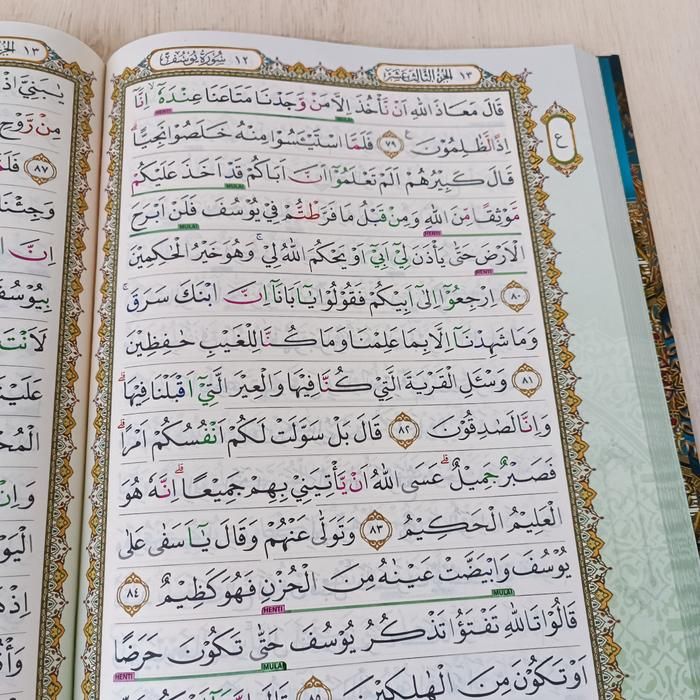 ١٣ الجزء الثالث عشر
سورة يوسف ١٢
قَالَ مَعَاذَ اللّٰهِ اَنْ نَّأْخُذَ اِلَّا مَنْ وَّجَدْنَا مَتَاعَنَا عِنْدَهٗٓ ۙاِنَّآ
HENTI
MULAI
اِذًا لَّظٰلِمُوْنَ ࣖ ٧٩ فَلَمَّا اسْتَيْـَٔسُوْا مِنْهُ خَلَصُوْا نَجِيًّاۗ
ع
قَالَ كَبِيْرُهُمْ اَلَمْ تَعْلَمُوْٓا اَنَّ اَبَاكُمْ قَدْ اَخَذَ عَلَيْكُمْ
MULAI
مَّوْثِقًا مِّنَ اللّٰهِ وَمِنْ قَبْلُ مَا فَرَّطْتُّمْ فِيْ يُوْسُفَ فَلَنْ اَبْرَحَ
HENTI
MULAI
الْاَرْضَ حَتّٰى يَأْذَنَ لِيْٓ اَبِيْٓ اَوْ يَحْكُمَ اللّٰهُ لِيْۚ وَهُوَ خَيْرُ الْحٰكِمِيْنَ
HENTI
٨٠ اِرْجِعُوْٓا اِلٰٓى اَبِيْكُمْ فَقُوْلُوْا يٰٓاَبَانَآ اِنَّ ابْنَكَ سَرَقَۚ
وَمَا شَهِدْنَآ اِلَّا بِمَا عَلِمْنَا وَمَا كُنَّا لِلْغَيْبِ حٰفِظِيْنَ
٨١ وَسْـَٔلِ الْقَرْيَةَ الَّتِيْ كُنَّا فِيْهَا وَالْعِيْرَ الَّتِيْٓ اَقْبَلْنَا فِيْهَاۗ
وَاِنَّا لَصٰدِقُوْنَ ٨٢ قَالَ بَلْ سَوَّلَتْ لَكُمْ اَنْفُسُكُمْ اَمْرًاۗ
فَصَبْرٌ جَمِيْلٌۗ عَسَى اللّٰهُ اَنْ يَّأْتِيَنِيْ بِهِمْ جَمِيْعًاۗ اِنَّهٗ هُوَ
الْعَلِيْمُ الْحَكِيْمُ ٨٣ وَتَوَلّٰى عَنْهُمْ وَقَالَ يٰٓاَسَفٰى عَلٰى
يُوْسُفَ وَابْيَضَّتْ عَيْنٰهُ مِنَ الْحُزْنِ فَهُوَ كَظِيْمٌ ٨٤
HENTI
MULAI
قَالُوْا تَاللّٰهِ تَفْتَؤُا تَذْكُرُ يُوْسُفَ حَتّٰى تَكُوْنَ حَرَضًا
HENTI
MULAI
اَوْ تَكُوْنَ مِنَ الْهٰلِكِيْنَ ٨٥ قَالَ